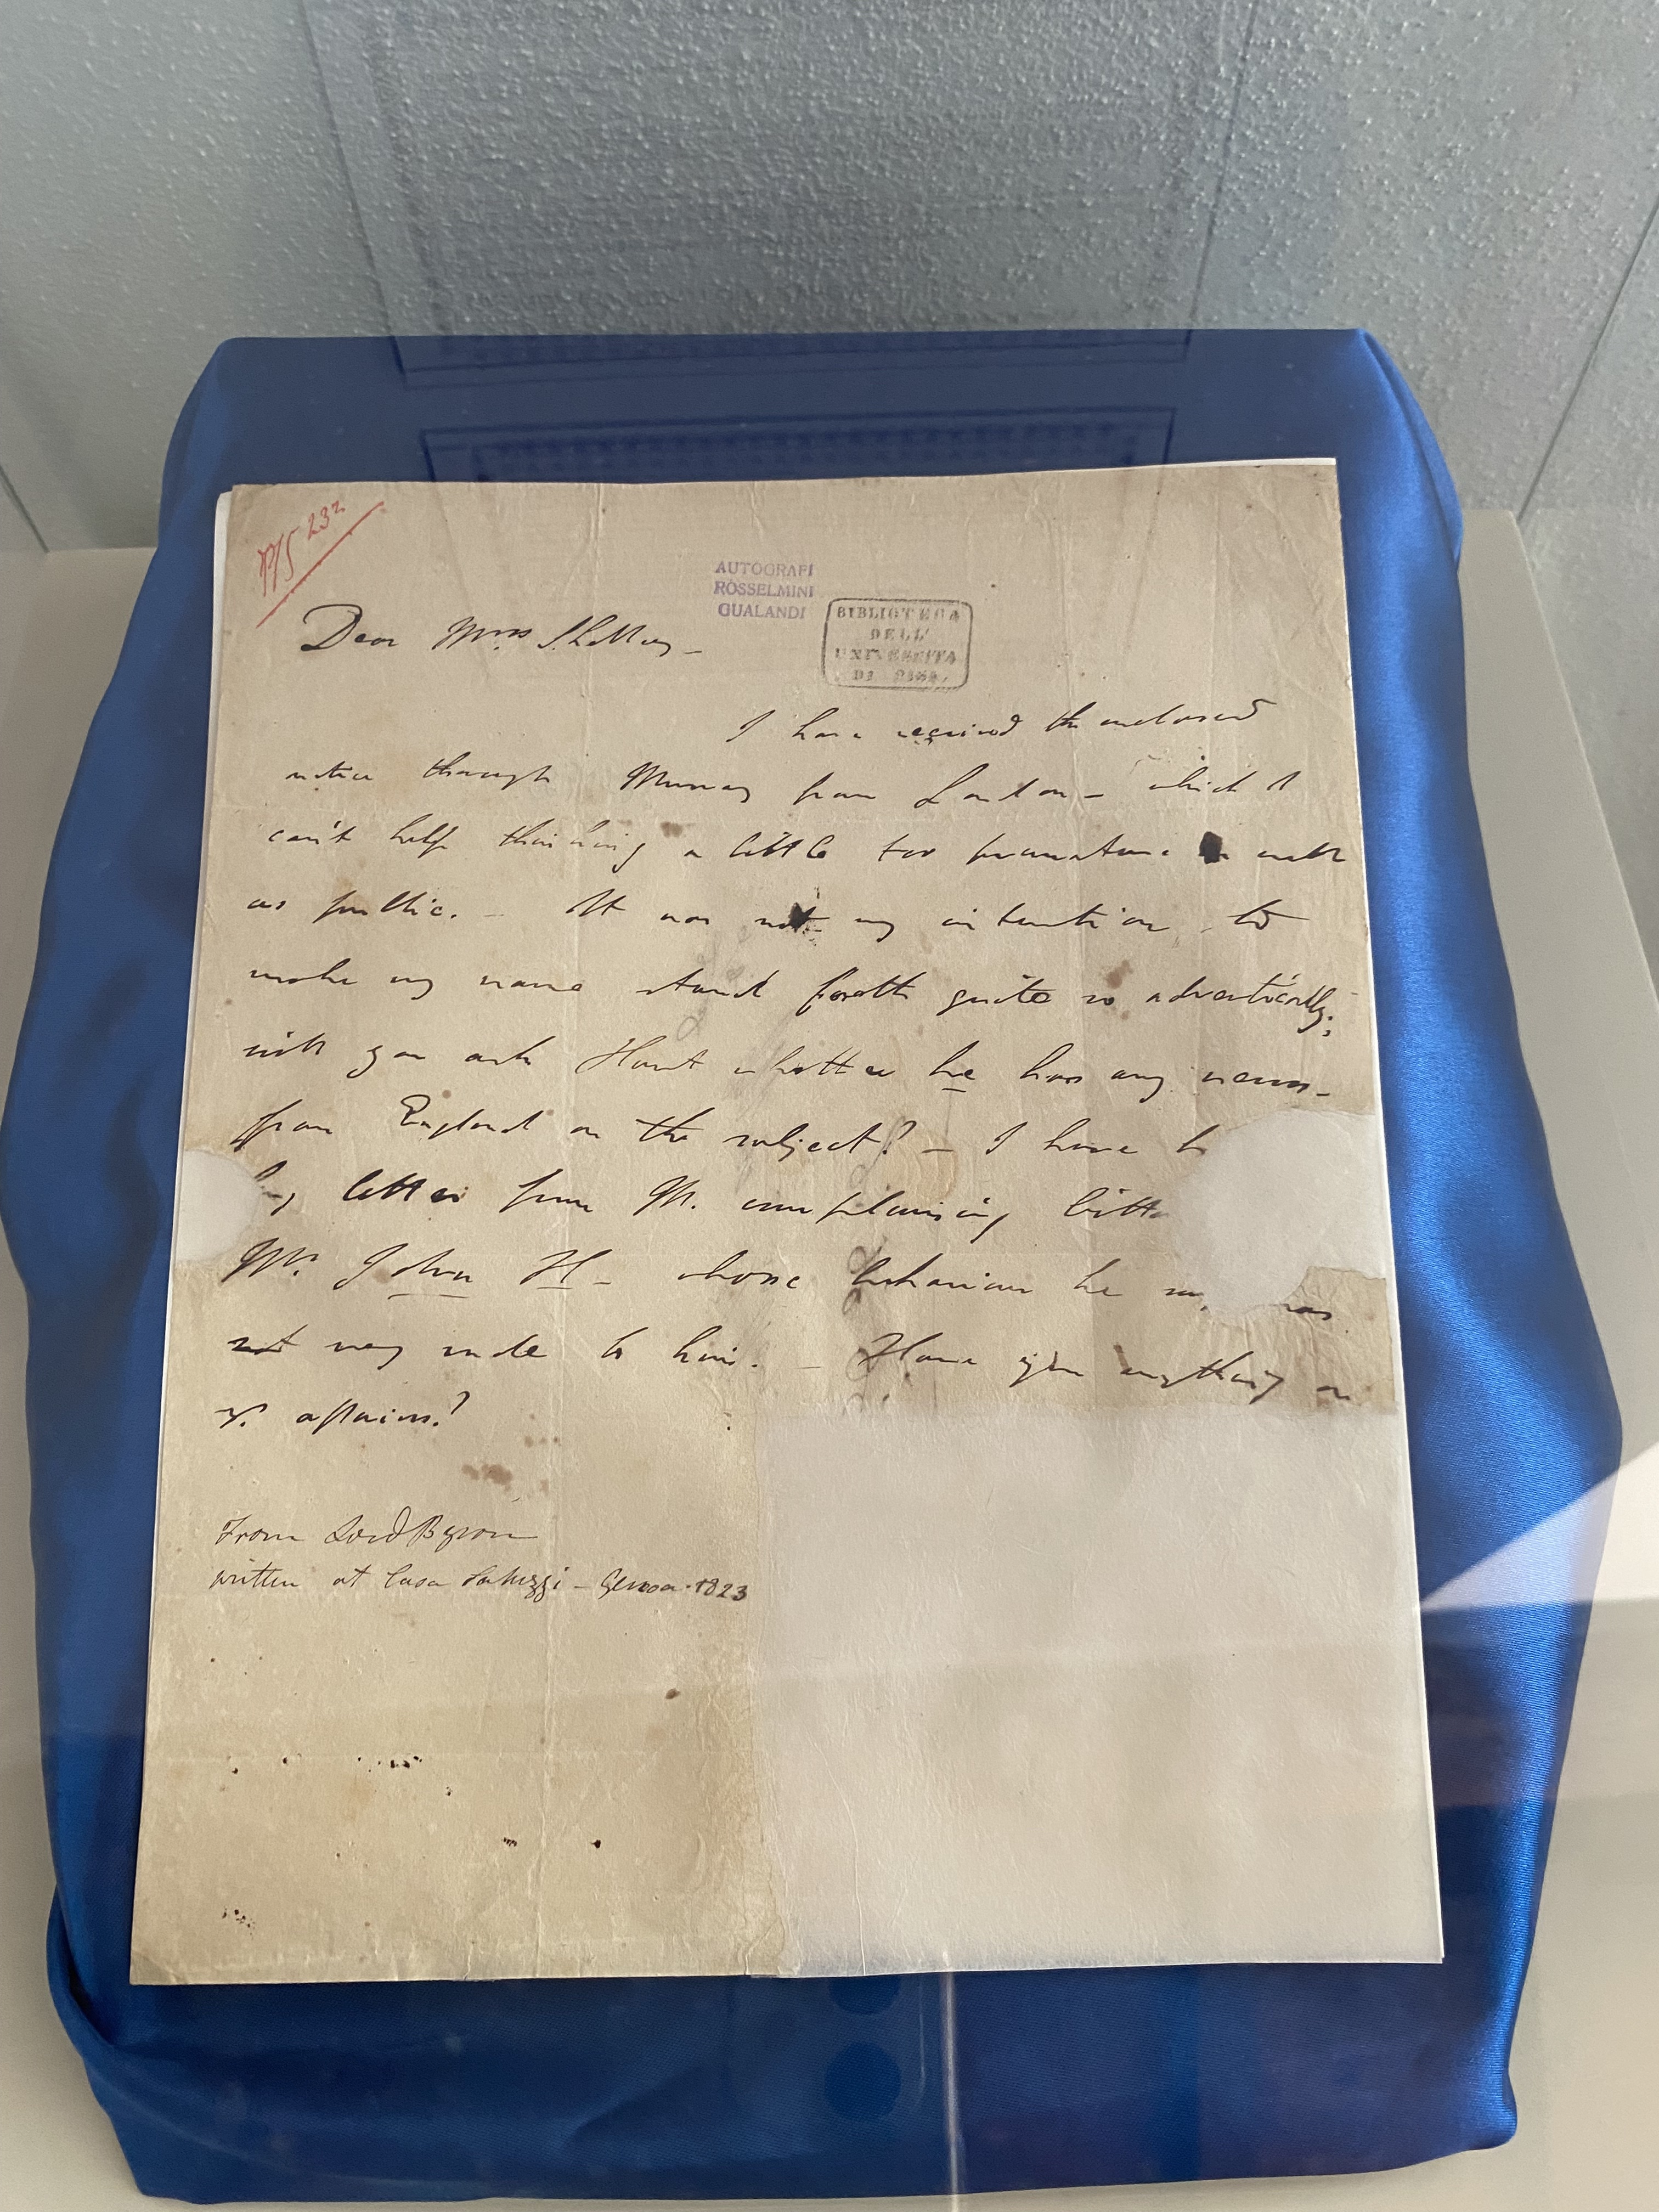 AUTOGRAFI
ROSSELMINI
GUALANDI
BIBLIOTECA
DELL'
UNIVERSITA
DI PISA
Dear Mrs. Shelley –
I have received the enclosed
notice through Murray from London – which I
can't help thinking a little too premature as well
as public. – It was not my intention to
make my name stand forth quite so
will you ask Hunt whether he has any news –
from England on the subject? – I have
letter from M. complaining
Mr. John H – whose behaviour he
not very rude to him. – Have you anything on
yr. affairs?
From Lord Byron
written at Casa Saluzzi – Genoa. 1823